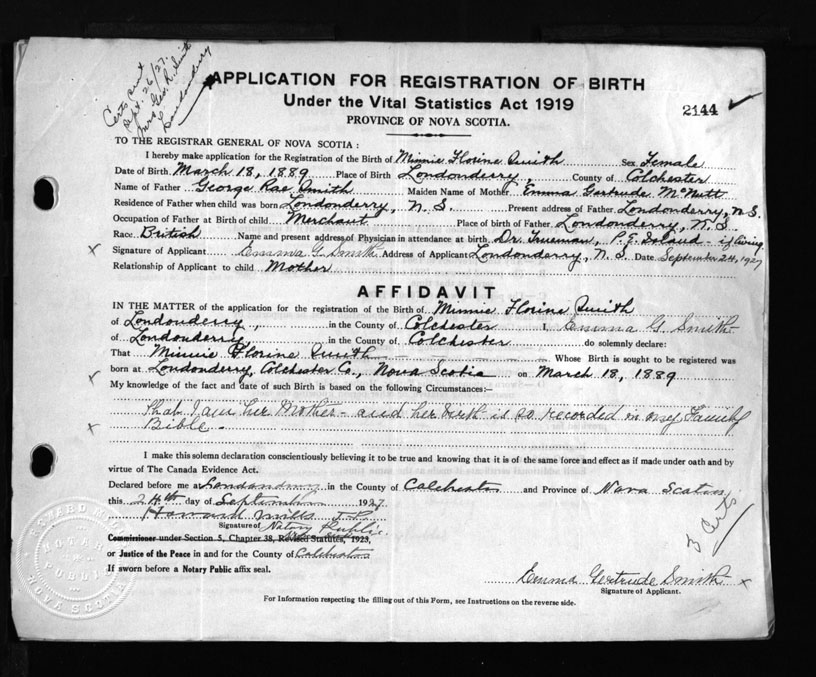 Certs sent
Sept. 26/27.
Mrs. Geo. R. Smith
Londonderry
APPLICATION FOR REGISTRATION OF BIRTH
Under the Vital Statistics Act 1919
2144
PROVINCE OF NOVA SCOTIA.
TO THE REGISTRAR GENERAL OF NOVA SCOTIA :
I hereby make application for the Registration of the Birth of Minnie Florine Smith Sex Female
Date of Birth March 18, 1889 Place of Birth Londonderry, County of Colchester
Name of Father George Rae Smith Maiden Name of Mother Emma Gertrude McNutt
Residence of Father when child was born Londonderry, N.S. Present address of Father Londonderry, N.S.
Occupation of Father at Birth of child Merchant Place of birth of Father Londonderry, N.S.
Race British Name and present address of Physician in attendance at birth Dr. Trueman, P.E. Island - if living
x Signature of Applicant Emma G. Smith Address of Applicant Londonderry, N.S. Date September 24, 1927
Relationship of Applicant to child Mother
AFFIDAVIT
IN THE MATTER of the application for the registration of the Birth of Minnie Florine Smith
of Londonderry, in the County of Colchester I, Emma G. Smith
of Londonderry in the County of Colchester do solemnly declare:
That Minnie Florine Smith Whose Birth is sought to be registered was
born at Londonderry, Colchester Co., Nova Scotia on March 18, 1889
My knowledge of the fact and date of such Birth is based on the following Circumstances:—
That I am her Mother - and her birth is so recorded in my Family
x Bible -
I make this solemn declaration conscientiously believing it to be true and knowing that it is of the same force and effect as if made under oath and by
virtue of The Canada Evidence Act.
Declared before me at Londonderry in the County of Colchester and Province of Nova Scotia
this 24th day of September 1927
Howard Mills J.P.
Signature of Notary Public
Commissioner under Section 5, Chapter 38, Revised Statutes, 1923,
or Justice of the Peace in and for the County of Colchester
If sworn before a Notary Public affix seal.
3 Certs
Emma Gertrude Smith x
Signature of Applicant.
For Information respecting the filling out of this Form, see Instructions on the reverse side.
NOTARY
PUBLIC
NOVA SCOTIA